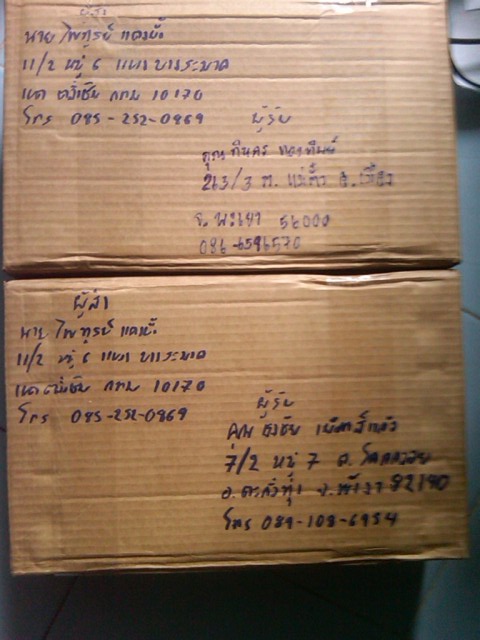 ผู้ส่ง
นาย ไพฑูรย์
11/2 หมู่ 6 แขวง บางระมาด
เขต ตลิ่งชัน กทม 10170
โทร 085-252-0869
ผู้รับ
คุณ ทินกร ทองทิพย์
263/3 ต. แม่ต๋ำ อ. เมือง
จ. พะเยา 56000
086-6596570
ผู้ส่ง
นาย ไพฑูรย์
11/2 หมู่ 6 แขวง บางระมาด
เขต ตลิ่งชัน กทม 10170
โทร 085-252-0869
ผู้รับ
คุณ ธงชัย
7/2 หมู่ 7 ต. โคกกลอย
อ. ตะกั่วทุ่ง จ. พังงา 82140
โทร 089-108-6954